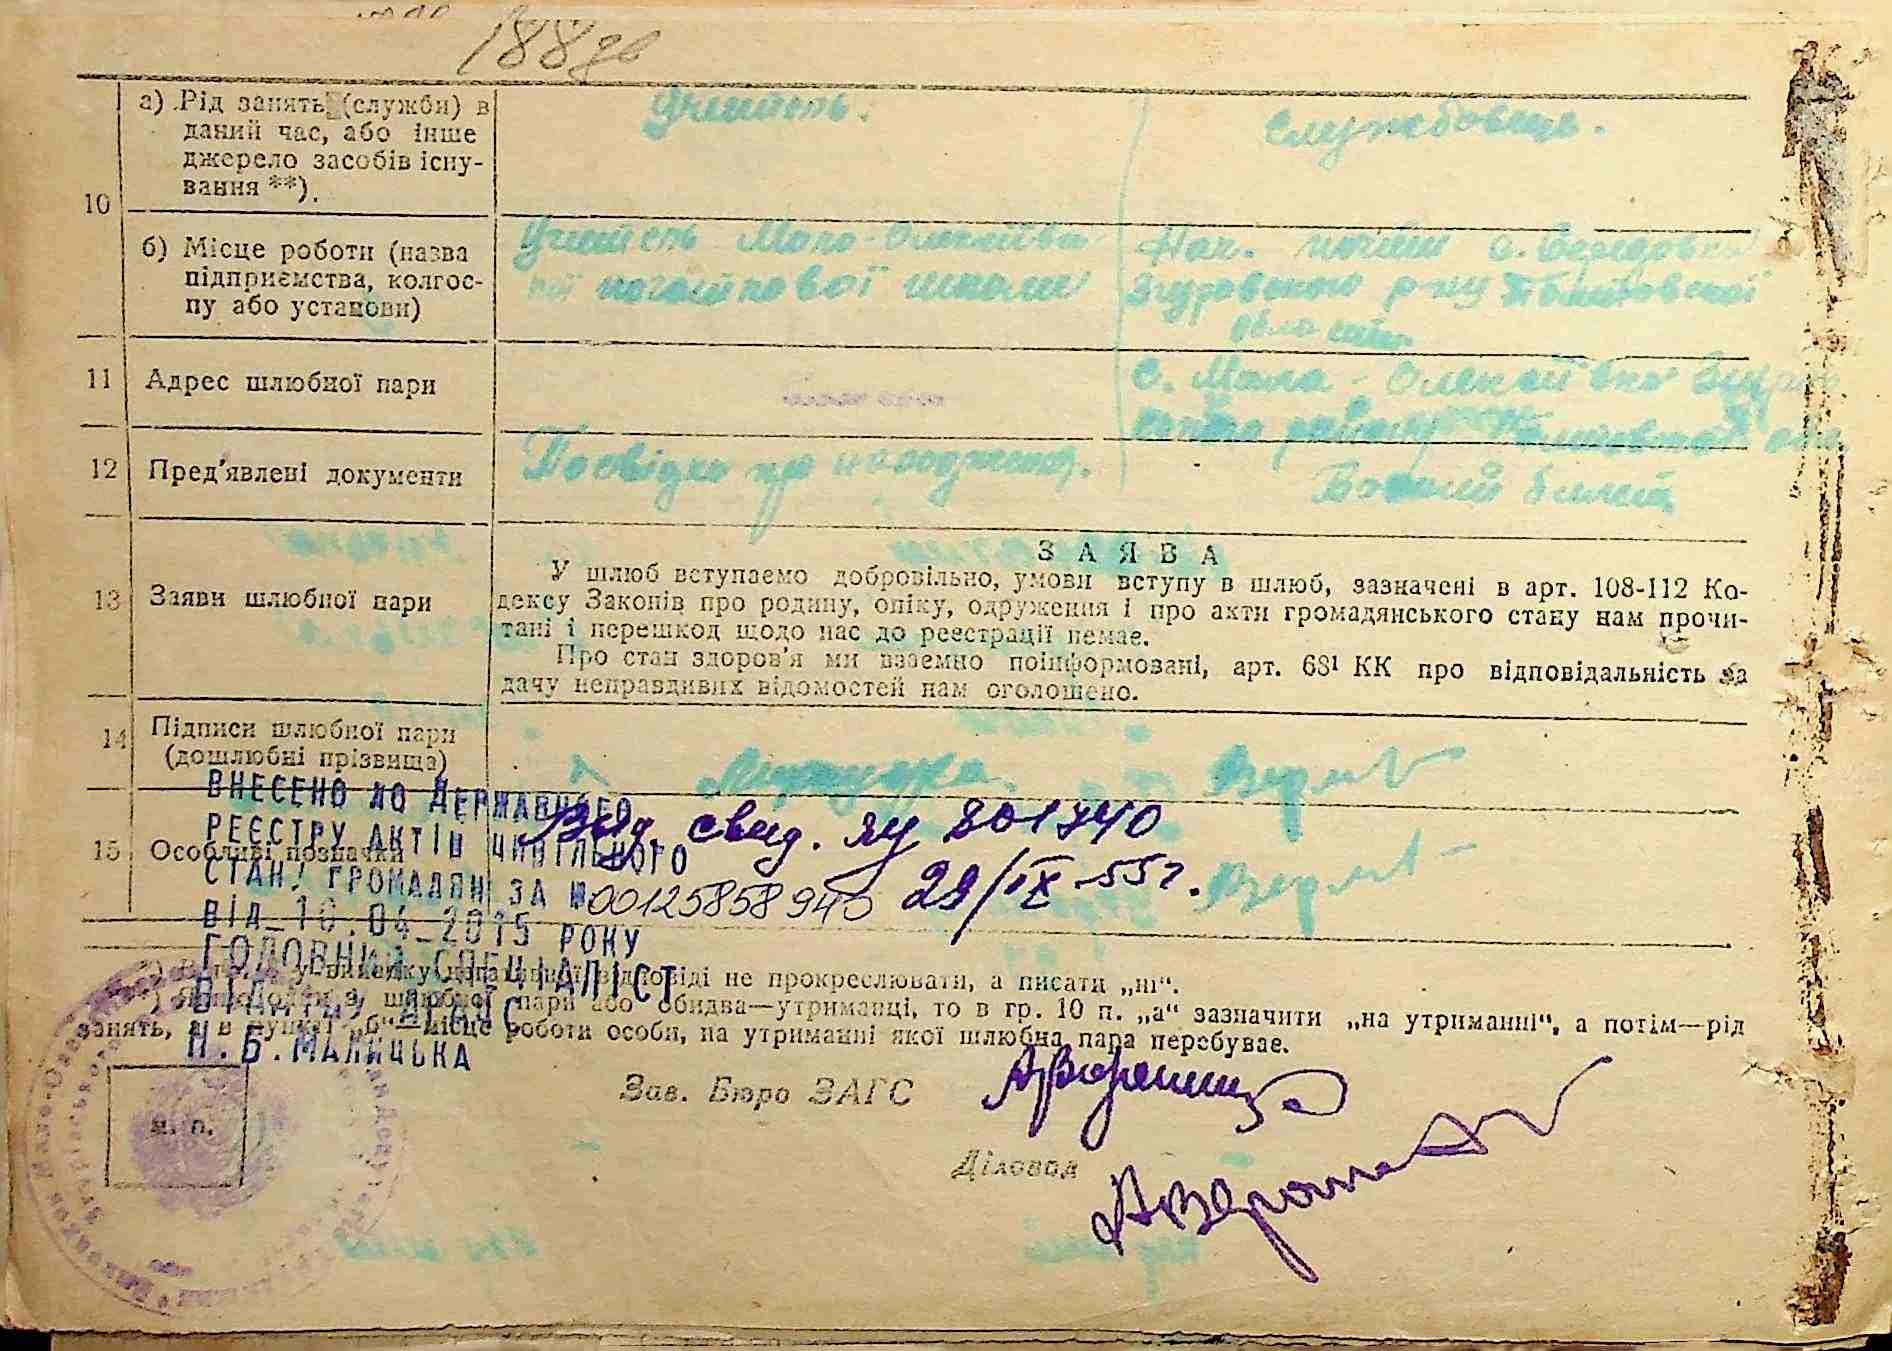 188 зв
10
а) Рід занять (служби) в
даний час, або інше
джерело засобів існу-
вання **).
Учитель.
Службовець.
б) Місце роботи (назва
підприємства, колгос-
пу або установи)
Учитель Мало-Олексіївсь-
кої початкової школи
Нач. пошти с.
Згуровського р-ну Полтавської
області
11
Адрес шлюбної пари
с. Мала-Олексіївка Згурів
ського району Полтавської обл
12
Пред'явлені документи
Посвідка про народження.
Воєнний билет
13
Заяви шлюбної пари
ЗАЯВА
У шлюб вступаємо добровільно, умови вступу в шлюб, зазначені в арт. 108-112 Ко-
дексу Законів про родину, опіку, одруження і про акти громадянського стану нам прочи-
тані і перешкод щодо нас до реєстрації немає.
Про стан здоров'я ми взаємно поінформовані, арт. 68¹ КК про відповідальність за
дачу неправдивих відомостей нам оголошено.
14
Підписи шлюбної пари
(дошлюбні прізвища)
15
Особливі позначки
Выд. свид. ЯУ 801740
29/IX-55г.
ВНЕСЕНО ДО ДЕРЖАВНОГО
РЕЄСТРУ АКТІВ ЦИВІЛЬНОГО
СТАНУ ГРОМАДЯН ЗА №00125858940
ВІД 10.04.2015 РОКУ
ГОЛОВНИЙ СПЕЦІАЛІСТ
ВІДДІЛУ ДРАЦС
Н.Б.МАЛИЦЬКА
не прокреслювати, а писати „ні“.
шлюбної пари або обидва—утриманці, то в гр. 10 п. „а“ зазначити „на утриманні“, а потім—рід
занять, а в пункті „б“—місце роботи особи, на утриманні якої шлюбна пара перебуває.
Зав. Бюро ЗАГС
Діловод
м. п.